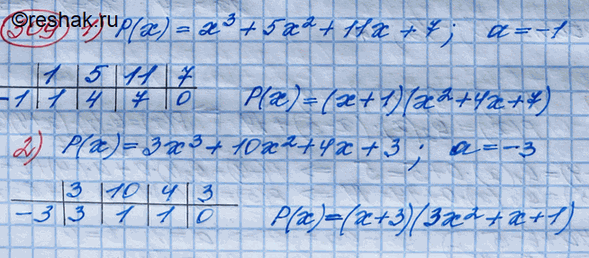 ©reshak.ru
309 1) P(x) = x³ + 5x² + 11x + 7; a = -1
1 5 11 7
-1 1 4 7 0 P(x) = (x+1)(x²+4x+7)
2) P(x) = 3x³ + 10x² + 4x + 3; a = -3
3 10 4 3
-3 3 1 1 0 P(x) = (x+3)(3x²+x+1)